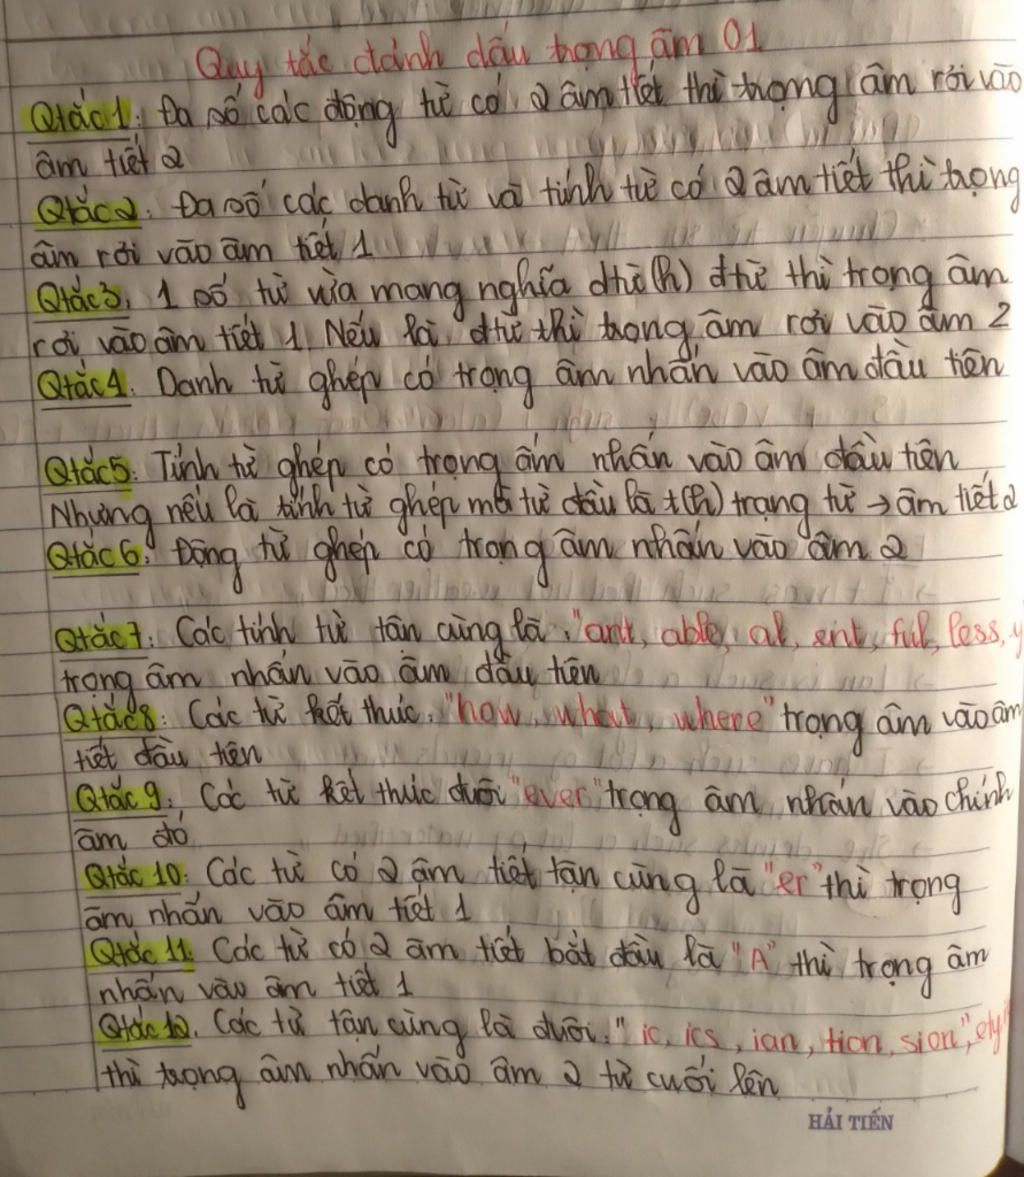 Quy tắc đánh dấu trọng âm 01
Qtắc 1: Đa số các động từ có 2 âm tiết thì trọng âm rơi vào
âm tiết 2
Qtắc 2: Đa số các danh từ và tính từ có 2 âm tiết thì trọng
âm rơi vào âm tiết 1
Qtắc 3: 1 số từ vừa mang nghĩa dtừ (h) đtừ thì trọng âm
rơi vào âm tiết 1. Nếu là đtừ thì trọng âm rơi vào âm 2
Qtắc 4: Danh từ ghép có trọng âm nhấn vào âm đầu tiên
Qtắc 5: Tính từ ghép có trọng âm nhấn vào âm đầu tiên
Nhưng nếu là tính từ ghép mà từ đầu là t(h) trạng từ → âm tiết 2
Qtắc 6: Động từ ghép có trọng âm nhấn vào âm 2
Qtắc 7: Các tính từ tân cùng là "ant, able, al, ent, ful, less, y
trọng âm nhấn vào âm đầu tiên
Qtắc 8: Các từ kết thúc "how, what, where" trọng âm vào âm
tiết đầu tiên
Qtắc 9: Các từ kết thúc đuôi "ever" trọng âm nhấn vào chính
âm đó
Qtắc 10: Các từ có 2 âm tiết tận cùng là "er" thì trọng
âm nhấn vào âm tiết 1
Qtắc 11: Các từ có 2 âm tiết bắt đầu là "A" thì trọng âm
nhấn vào âm tiết 1
Qtắc 12. Các từ tận cùng là đuôi "ic, ics, ian, tion, sion",
thì trọng âm nhấn vào âm 2 từ cuối lên
HẢI TIẾN